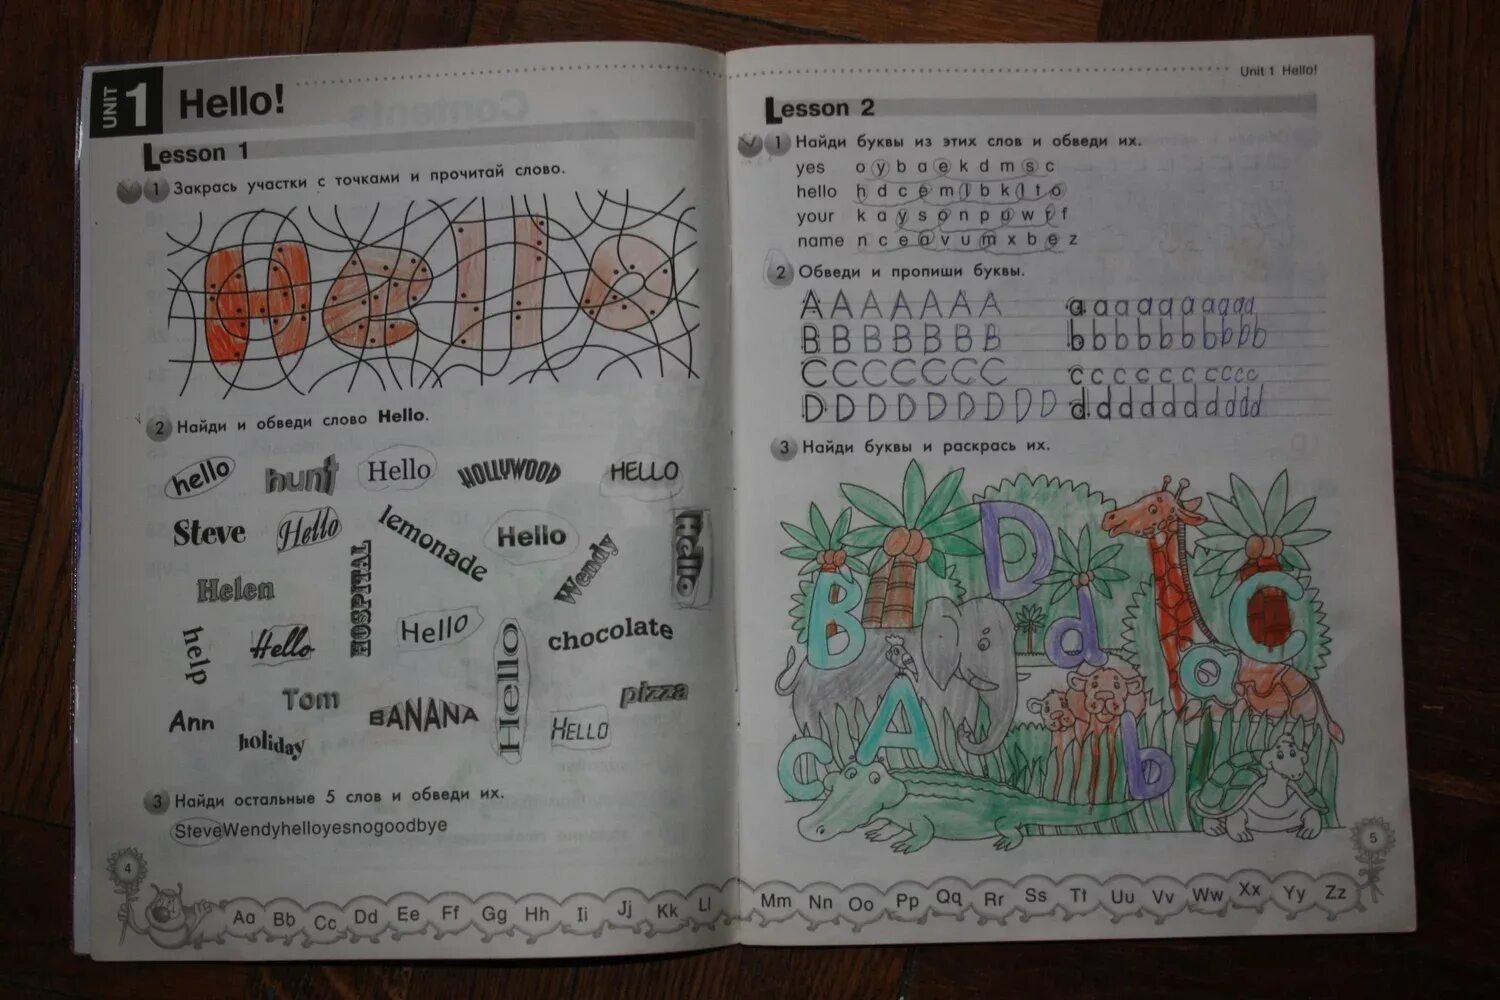 UNIT 1 Hello!
Lesson 1
1 Закрась участки с точками и прочитай слово.
Hello
2 Найди и обведи слово Hello.
hello hunt Hello HOLLYWOOD HELLO
Steve Hello lemonade Hello Wendy Hello
Helen HOSPITAL
help Hello Hello Hello chocolate
Tom BANANA pizza
Ann holiday HELLO
3 Найди остальные 5 слов и обведи их.
SteveWendyhelloyesnogoodbye
4
Aa Bb Cc Dd Ee Ff Gg Hh Ii Jj Kk Ll
Unit 1 Hello!
Lesson 2
1 Найди буквы из этих слов и обведи их.
yes o y b a e k d m s c
hello h d c e m l b k l t o
your k a y s o n p u w r f
name n c e a v u m x b e z
2 Обведи и пропиши буквы.
A A A A A A A a a a a a a a a a a
B B B B B B B b b b b b b b b b b
C C C C C C C c c c c c c c c c c
D D D D D D D D D d d d d d d d d d d
3 Найди буквы и раскрась их.
D
B d C
a
A
c b
5
Mm Nn Oo Pp Qq Rr Ss Tt Uu Vv Ww Xx Yy Zz